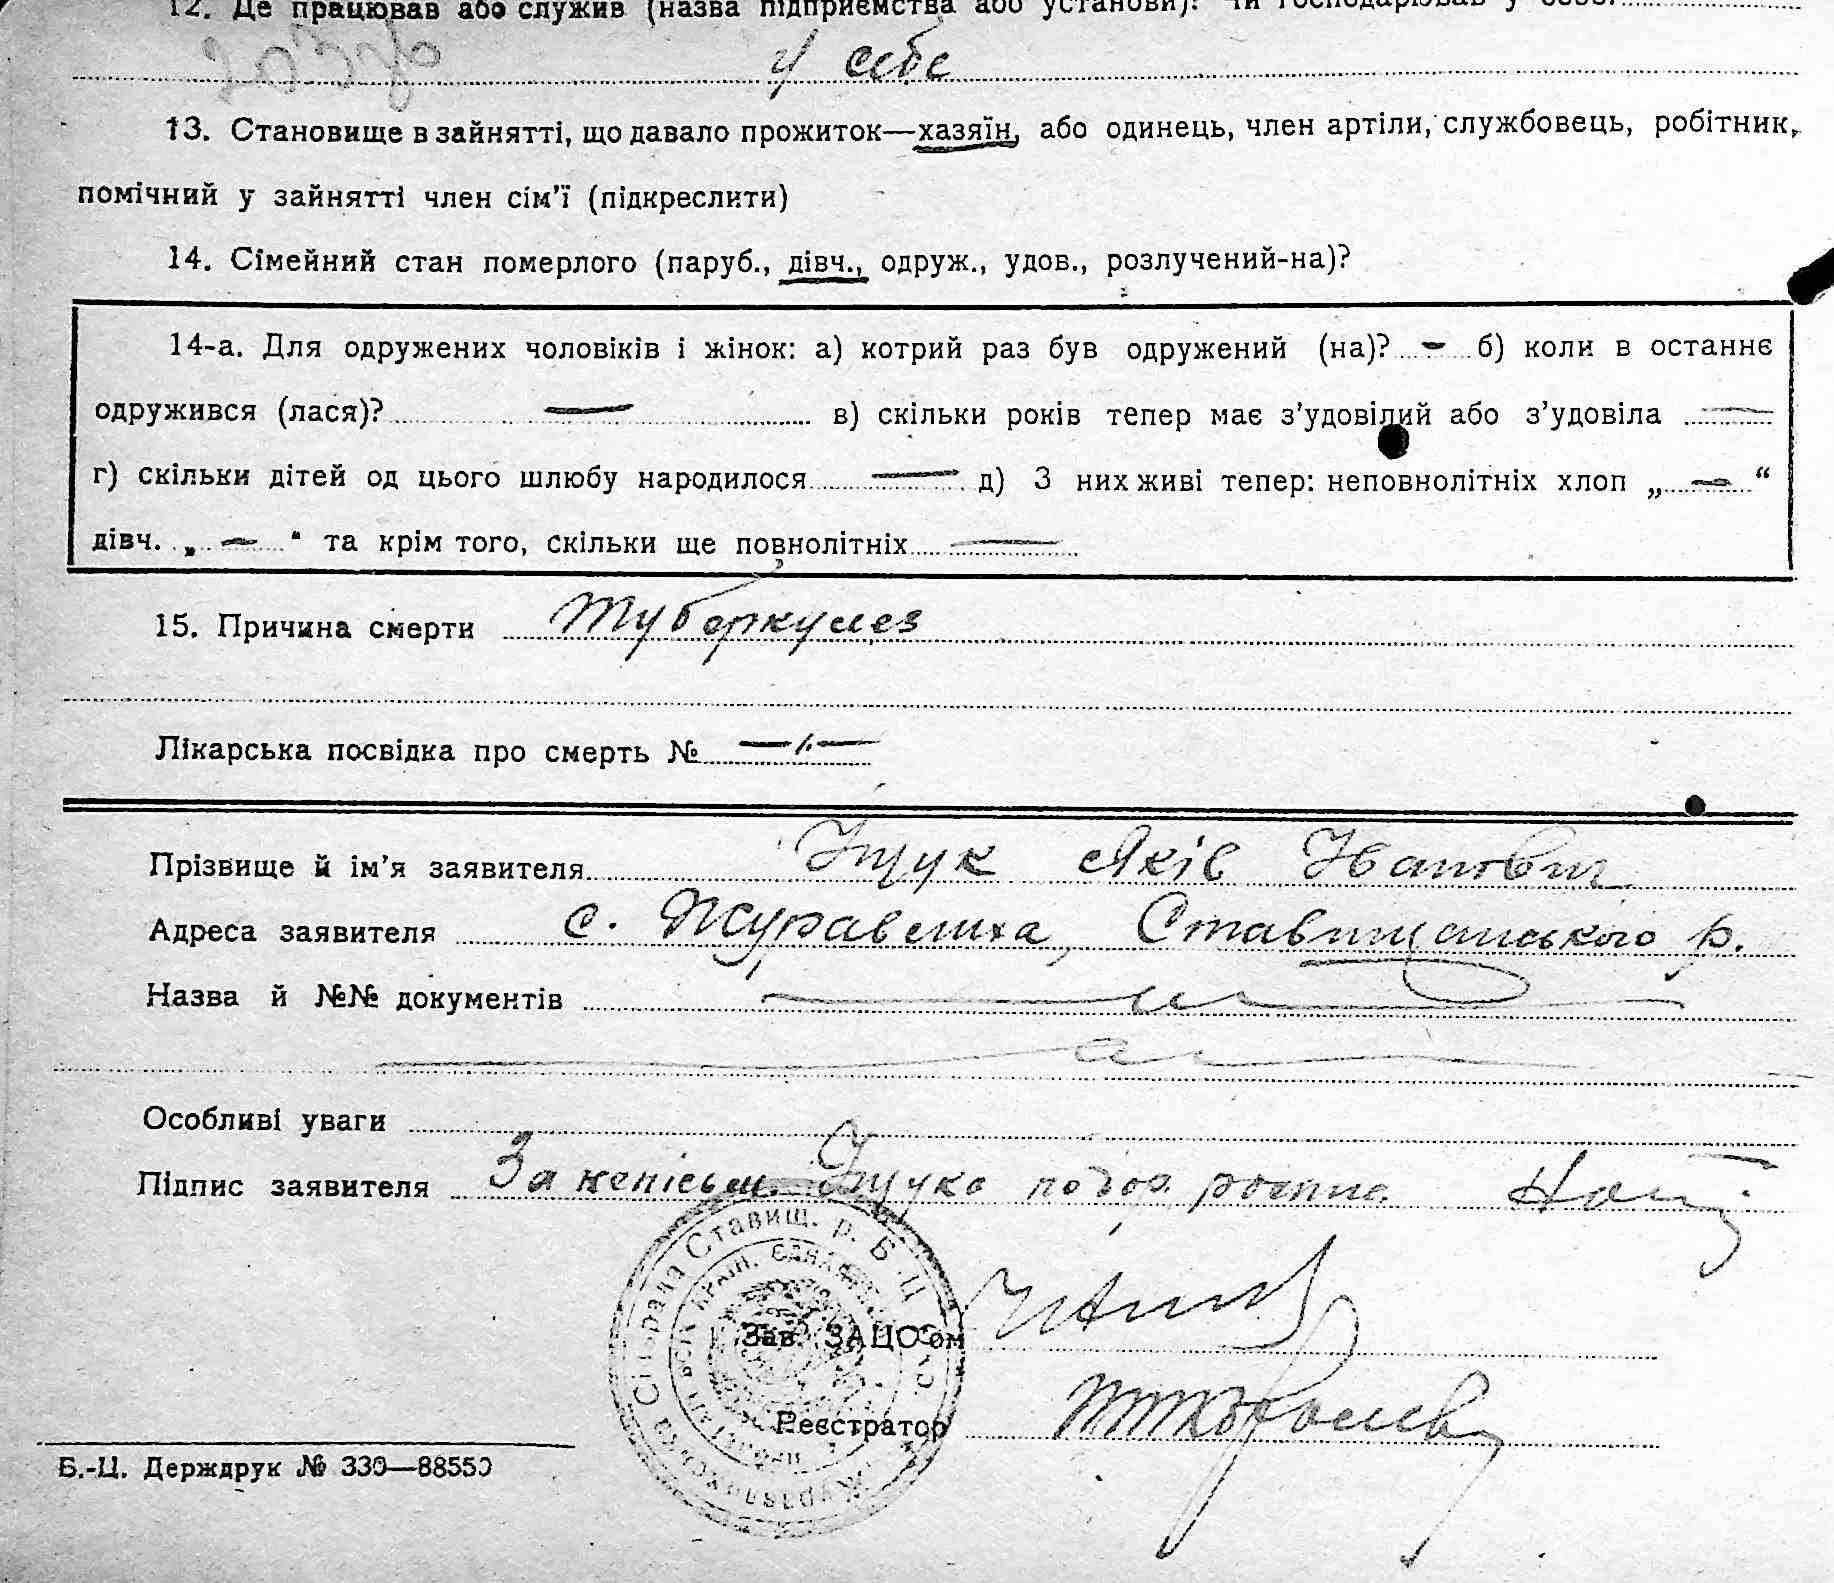 12. Де працював або служив (назва підприємства або установи). Чи господарював у себе.
у себе
13. Становище в зайнятті, що давало прожиток—хазяїн, або одинець, член артіли, службовець, робітник,
помічний у зайнятті член сім’ї (підкреслити)
14. Сімейний стан померлого (паруб., дівч., одруж., удов., розлучений-на)?
14-а. Для одружених чоловіків і жінок: а) котрий раз був одружений (на)? — б) коли в останнє
одружився (лася)? — в) скільки років тепер має з’удовілий або з’удовіла —
г) скільки дітей од цього шлюбу народилося — д) З них живі тепер: неповнолітніх хлоп „ — “
дівч. „ — “ та крім того, скільки ще повнолітніх —
15. Причина смерти Туберкулез
Лікарська посвідка про смерть № —
Прізвище й ім’я заявителя Іщук Яків
Адреса заявителя с. Журавлиха, Ставищанського р.
Назва й №№ документів
Особливі уваги
Підпис заявителя За неписьм. Іщука
Ставищ. р. Б.-Ц.
Зав. ЗАЦС'ом
Реєстратор
Б.-Ц. Держдрук № 330—88550